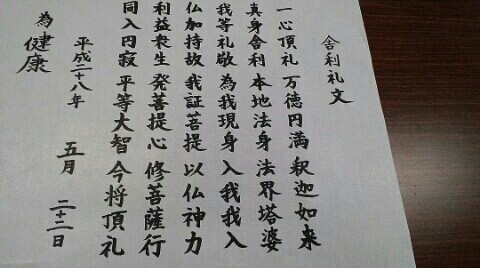 舎利礼文
一心頂礼 万徳円満 釈迦如来
真身舎利 本地法身 法界塔婆
我等礼敬 為我現身 入我我入
仏加持故 我証菩提 以仏神力
利益衆生 発菩提心 修菩薩行
同入円寂 平等大智 今将頂礼
平成二十八年 五月 二十二日
為 健康